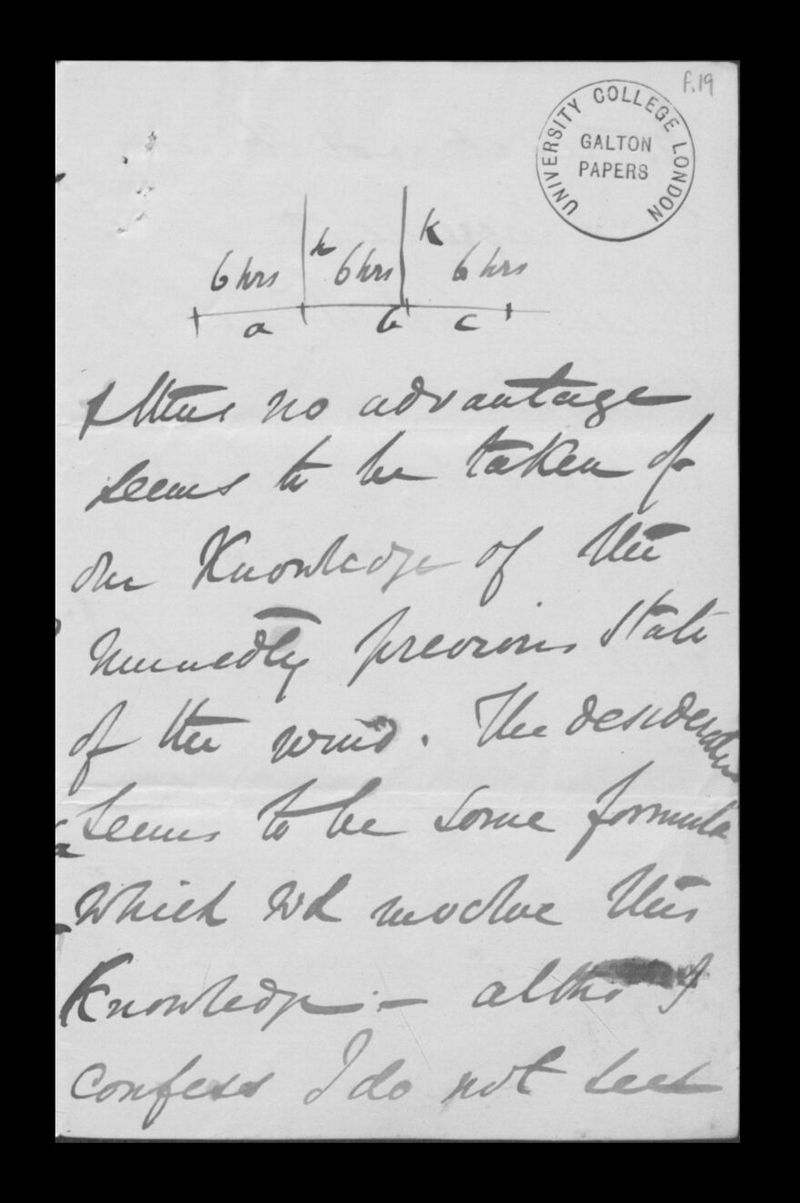 f.19
UNIVERSITY COLLEGE LONDON
GALTON
PAPERS
h K
6 hrs 6 hrs 6 hrs
a b c
& thus no advantage
seems to be taken of
the Knowledge of the
immedly previous state
of the wind. The desideratum
seems to be some formula
which wd involve this
Knowledge - altho' I
confess I do not see